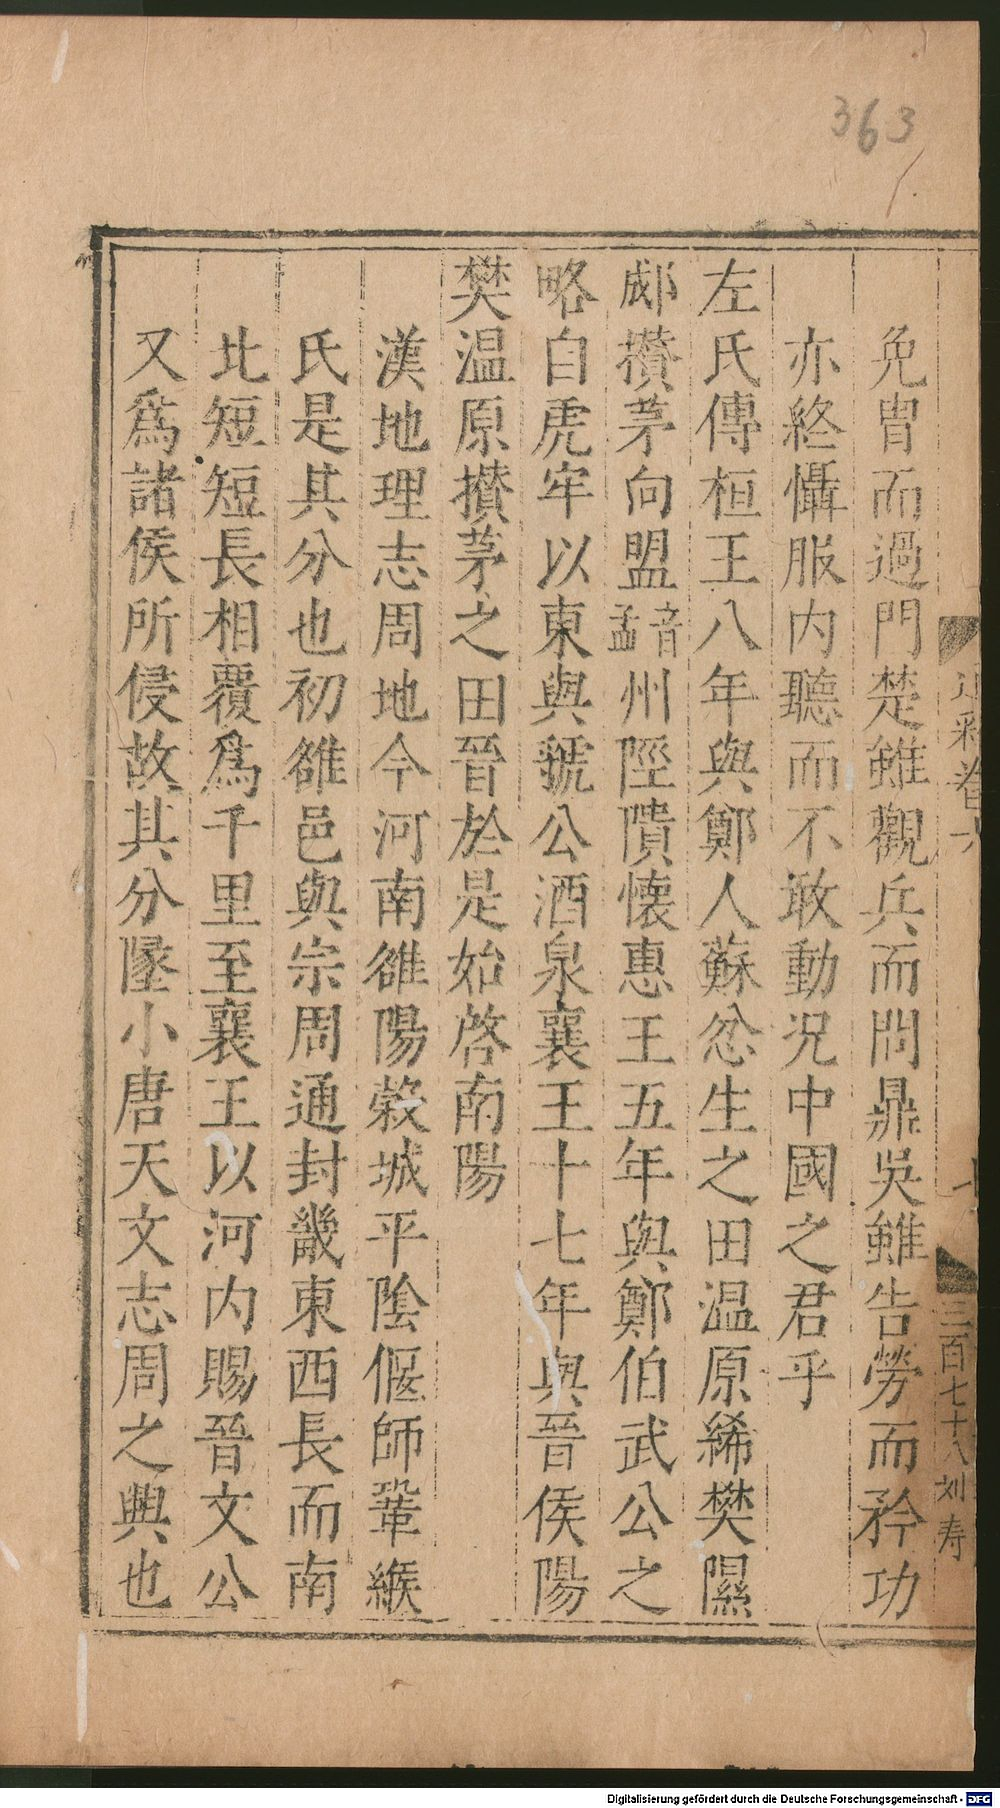 363
免胄而過門楚雖觀兵而問鼎吳雖告勞而矜功
亦終懾服内聽而不敢動况中國之君乎
左氏傳桓王八年與鄭人蘇忿生之田温原絺樊隰
郕攢茅向盟音孟州陘隤懷惠王五年與鄭伯武公之
略自虎牢以東與虢公酒泉襄王十七年與晉侯陽
樊温原攢茅之田晉於是始啓南陽
漢地理志周地今河南雒陽榖城平陰偃師鞏緱
氏是其分也初雒邑與宗周通封畿東西長而南
北短短長相覆爲千里至襄王以河内賜晉文公
又爲諸侯所侵故其分墬小唐天文志周之興也
三百七十八 刘寿
Digitalisierung gefördert durch die Deutsche Forschungsgemeinschaft - DFG